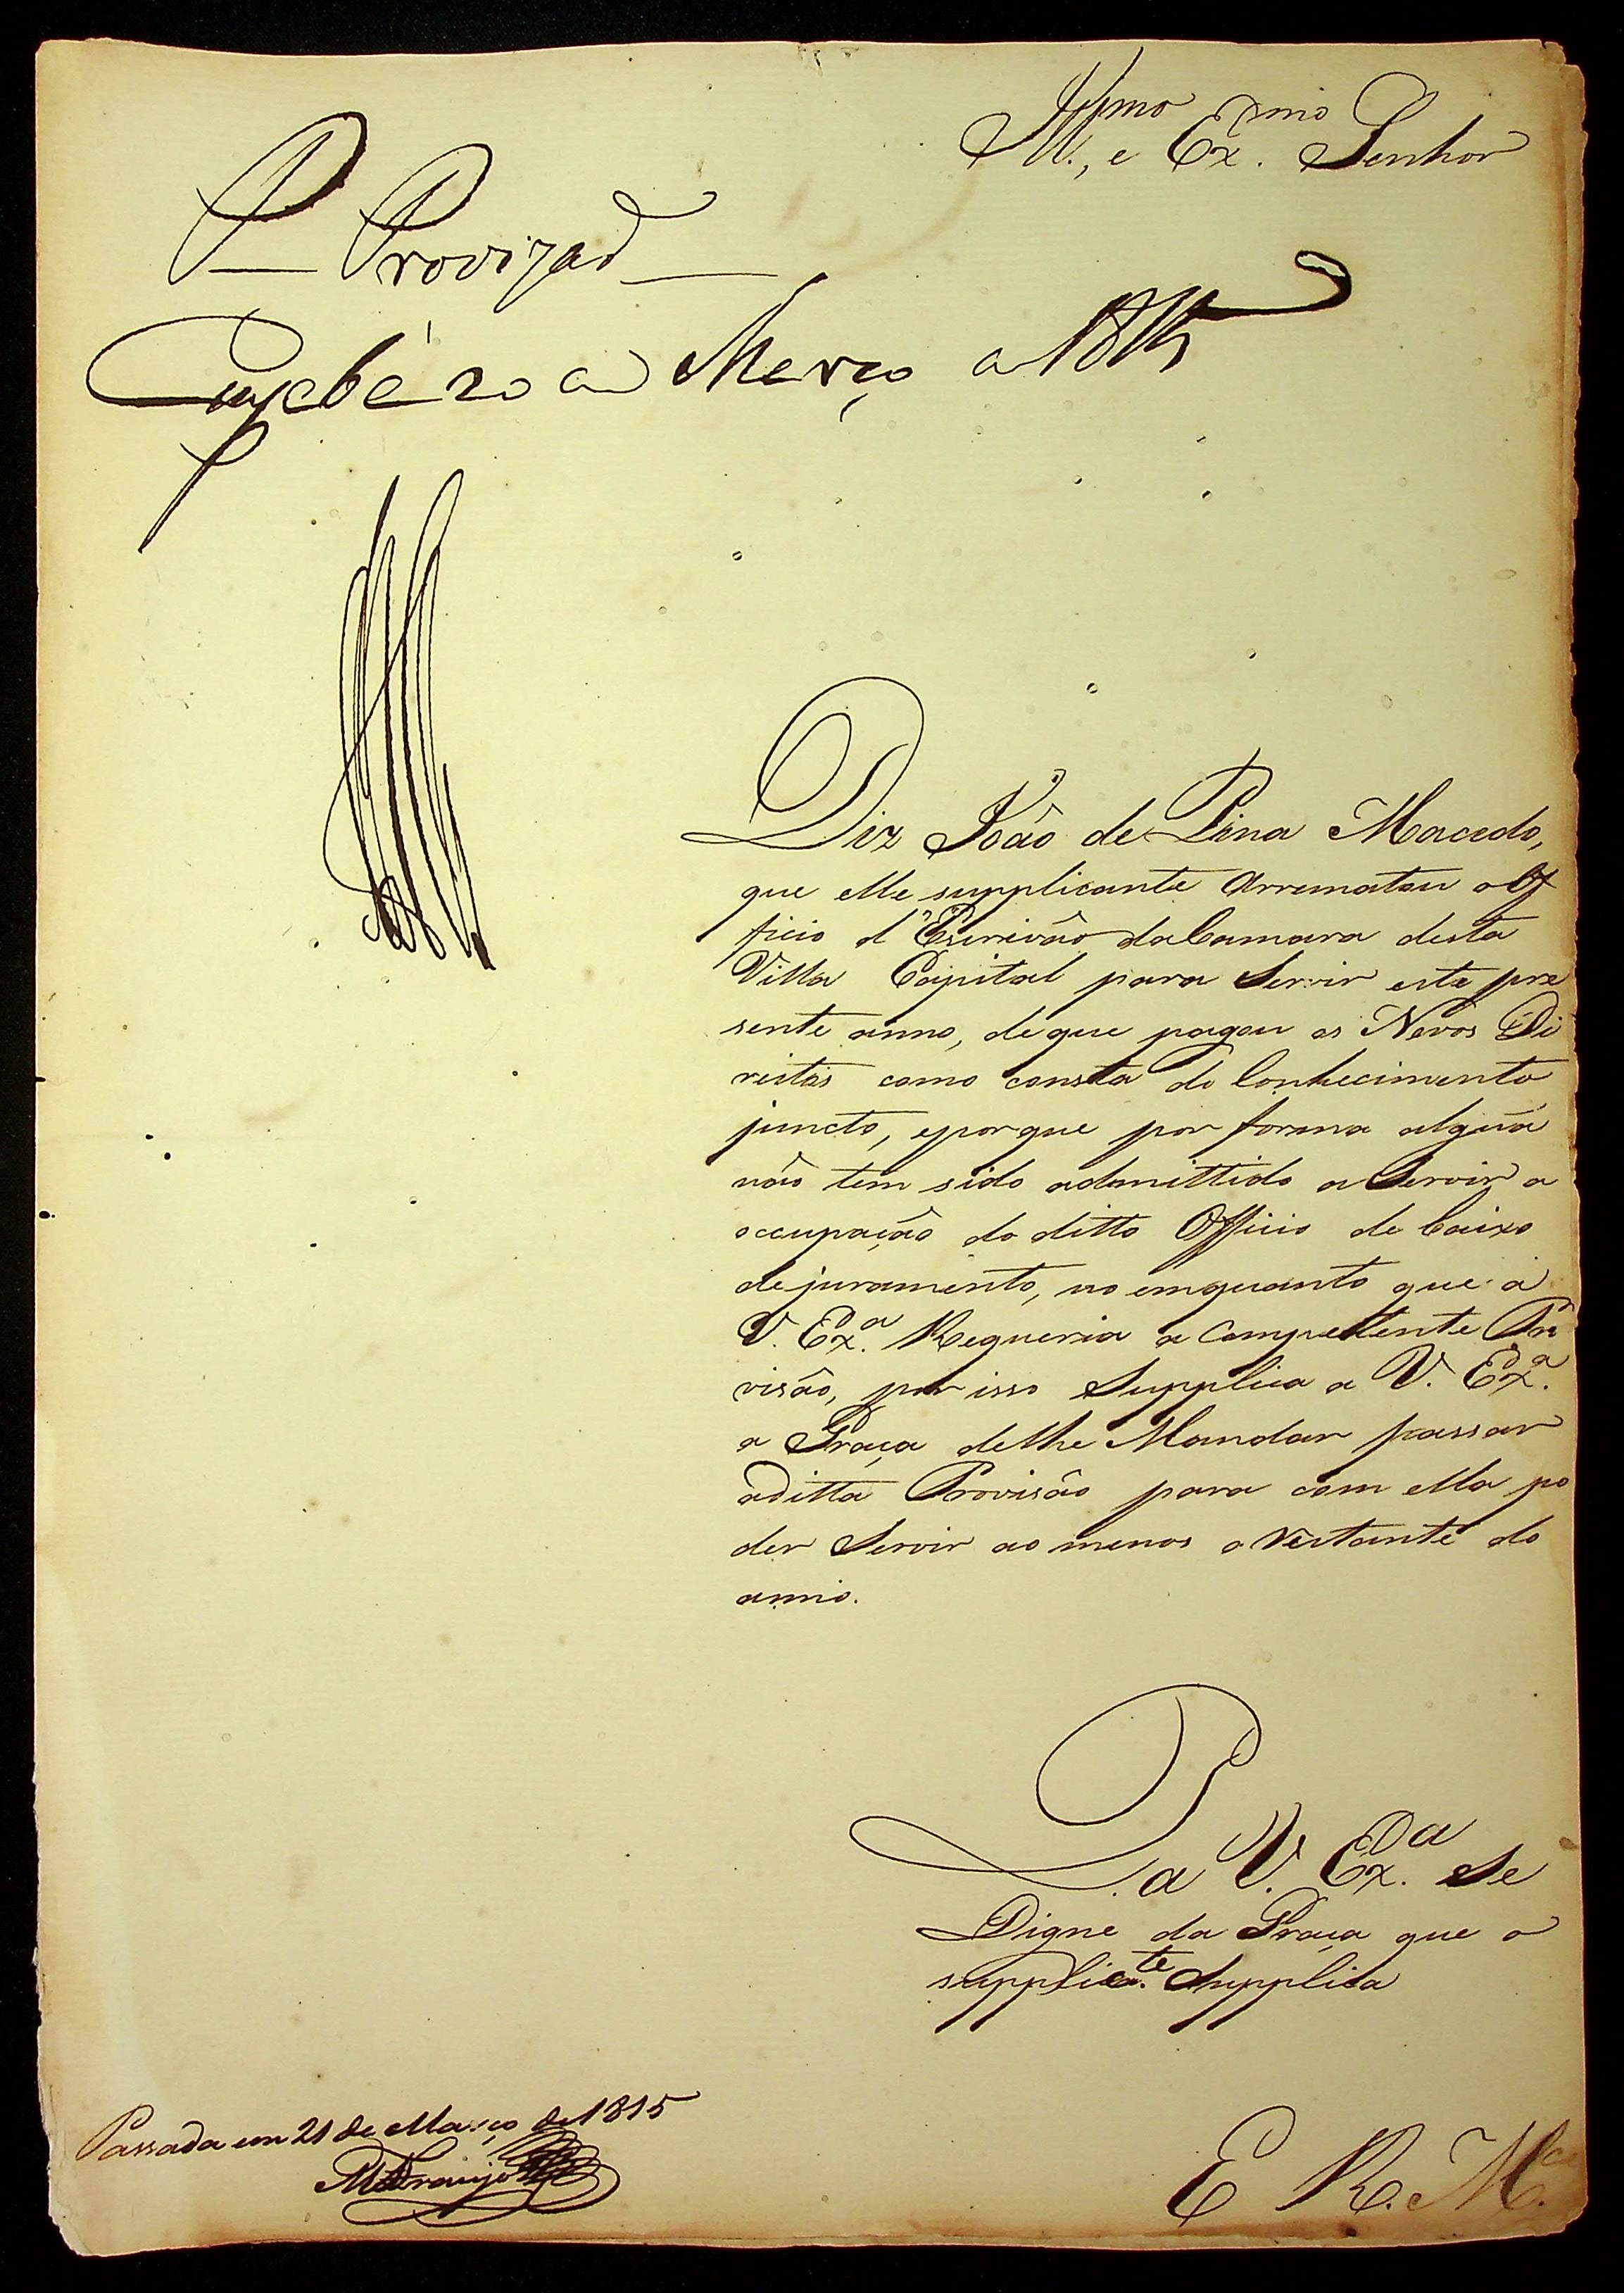 Ill.mo, e Ex.mo Senhor
P Provizaõ
Cuyabá 20 de Março de 1815
Diz Joaõ de Pina Macedo,
que elle supplicante arrematou o Of
ficio d'Escrivaõ da Camara desta
Villa Capital para Servir este pre
sente anno, de que pagou os Novos Di
reitos como consta do Conhecimento
juncto, e porque por forma algũa
naõ tem sido admittido a Servir a
occupaçaõ do ditto Officio de baixo
de juramento, no emquanto que a
V. Ex.a Requeria a Competente Pro
visaõ, por isso Supplica a V. Ex.a
a Graça de lhe Mandar passar
a ditta Provisaõ para com ella po
der Servir ao menos o restante do
anno.
P. a V. Ex.a Se
Digne da Graça que o
supplic.te Supplica
E R. M.ce
Passada em 21 de Março de 1815